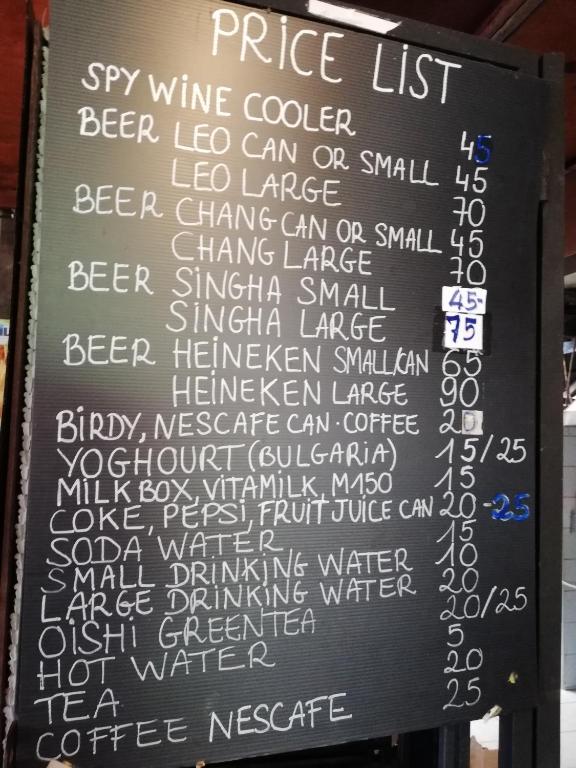 PRICE LIST
SPY WINE COOLER 45
BEER LEO CAN OR SMALL 45
LEO LARGE 70
BEER CHANG CAN OR SMALL 45
CHANG LARGE 70
BEER SINGHA SMALL 45-
SINGHA LARGE 75
BEER HEINEKEN SMALL/CAN 65
HEINEKEN LARGE 90
BIRDY, NESCAFE CAN·COFFEE 20
YOGHOURT (BULGARIA) 15/25
MILK BOX, VITAMILK, M150 15
COKE, PEPSI, FRUIT JUICE CAN 20-25
SODA WATER 15
SMALL DRINKING WATER 10
LARGE DRINKING WATER 20
OISHI GREENTEA 20/25
HOT WATER 5
TEA 20
COFFEE NESCAFE 25